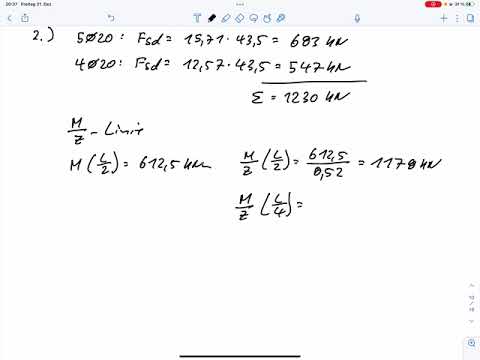 20:37 Freitag 31. Dez.
2.) 5Ø20: Fsd = 15,71 · 43,5 = 683 kN
4Ø20: Fsd = 12,57 · 43,5 = 547 kN
Σ = 1230 kN
M/z - Linie
M (L/2) = 612,5 kNm M/z (L/2) = 612,5/0,52 = 1178 kN
M/z (L/4) =